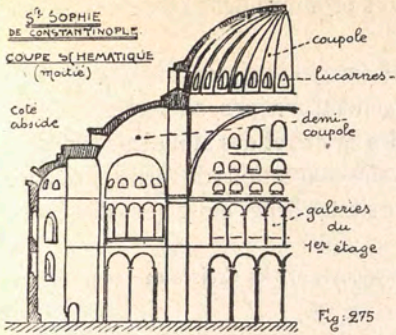 Ste SOPHIE
DE CONSTANTINOPLE
COUPE SCHEMATIQUE
(moitié)
coupole
lucarnes
coté
abside
demi-
coupole
galeries
du
1er étage
Fig: 275